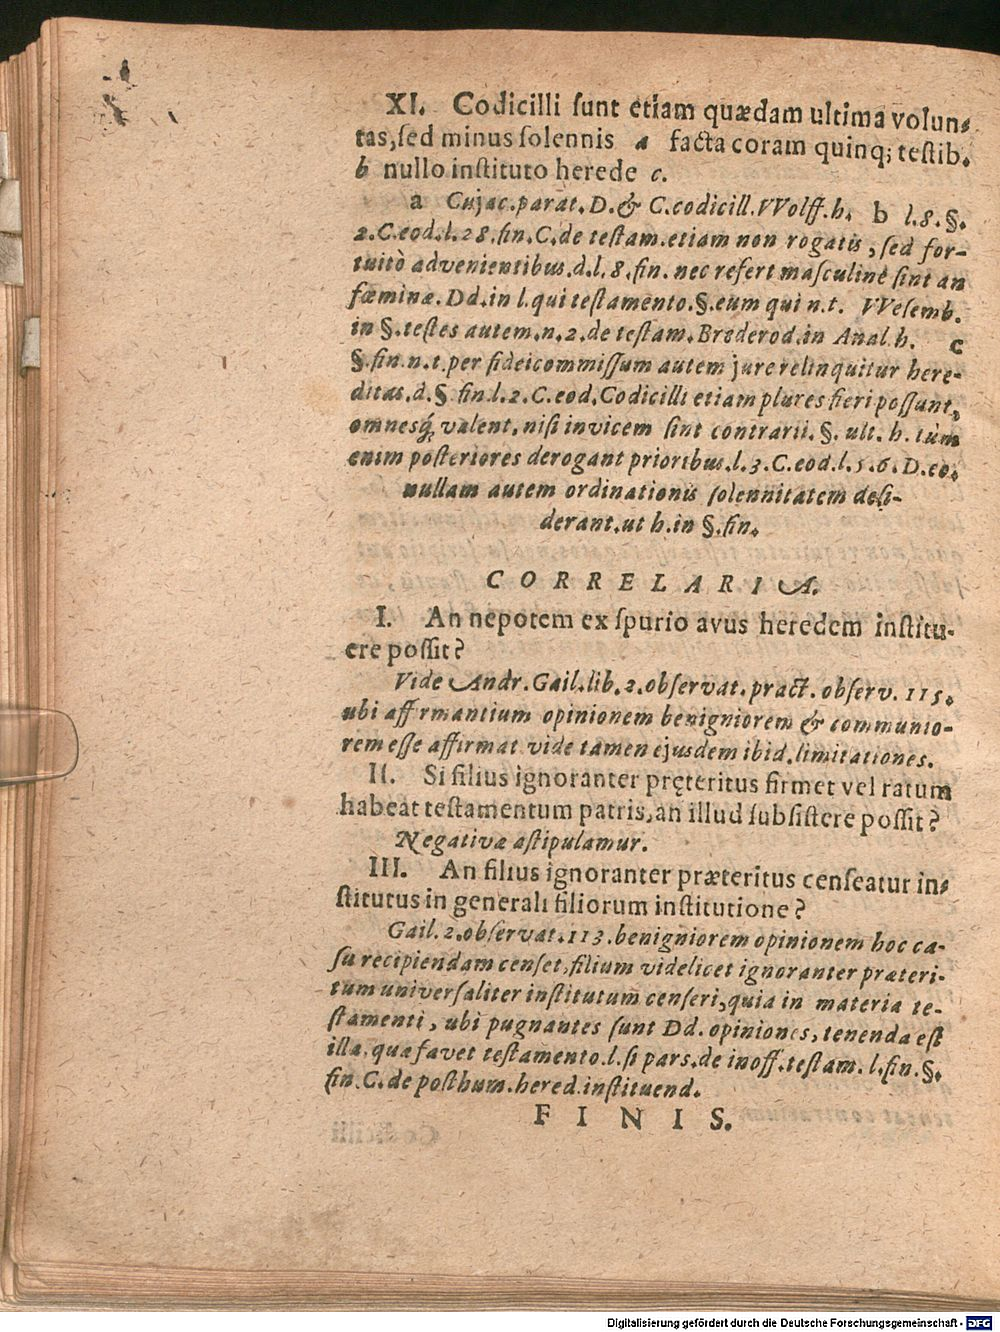 XI. Codicilli ſunt etiam quædam ultima volun-
tas, ſed minus ſolennis a facta coram quinq; teſtib.
b nullo inſtituto herede c.
a Cujac. parat. D. & C. codicill. VVolff. h. b l. 8. §.
2. C. eod. l. 28. fin. C. de teſtam. etiam non rogatis, ſed for-
tuitò advenientibus. d. l. 8. fin. nec refert maſculinè ſint an
fœminæ. Dd. in l. qui teſtamento. §. eum qui n. t. VVeſemb.
in §. teſtes autem. n. 2. de teſtam. Brederod. in Anal. h. c
§. fin. n. t. per fideicommiſſum autem jure relinquitur here-
ditas. d. §. fin. l. 2. C. eod. Codicilli etiam plures fieri poſſunt,
omnesq́; valent, niſi invicem ſint contrarii. §. ult. h. tùm
enim poſteriores derogant prioribus. l. 3. C. eod. l. 5. 6. D. eo.
nullam autem ordinationis ſolennitatem deſi-
derant. ut h. in §. fin.
CORRELARIA.
I. An nepotem ex ſpurio avus heredem inſtitu-
ere poſſit?
Vide Andr. Gail. lib. 2. obſervat. pract. obſerv. 115.
ubi affirmantium opinionem benigniorem & communio-
rem eſſe affirmat vide tamen ejusdem ibid. limitationes.
II. Si filius ignoranter pręteritus firmet vel ratum
habeat teſtamentum patris, an illud ſubſiſtere poſſit?
Negativæ aſtipulamur.
III. An filius ignoranter præteritus cenſeatur in-
ſtitutus in generali filiorum inſtitutione?
Gail. 2. obſervat. 113. benigniorem opinionem hoc ca-
ſu recipiendam cenſet, filium videlicet ignoranter præteri-
tum univerſaliter inſtitutum cenſeri, quia in materia te-
ſtamenti, ubi pugnantes ſunt Dd. opiniones, tenenda eſt
illa, quæ favet teſtamento. l. ſi pars. de inoff. teſtam. l. fin. §.
fin. C. de poſthum. hered. inſtituend.
FINIS.
Digitalisierung gefördert durch die Deutsche Forschungsgemeinschaft - DFG